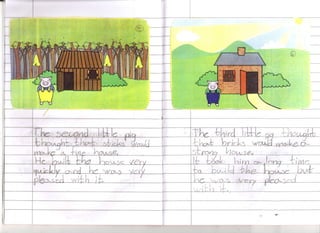 The second little pig
thought that sticks would
make a fine house.
He built the house very
quickly and he was very
pleased with it.
The third little pig thought
that bricks would make a
strong house.
It took him a long time
to build the house but
he was very pleased
with it.